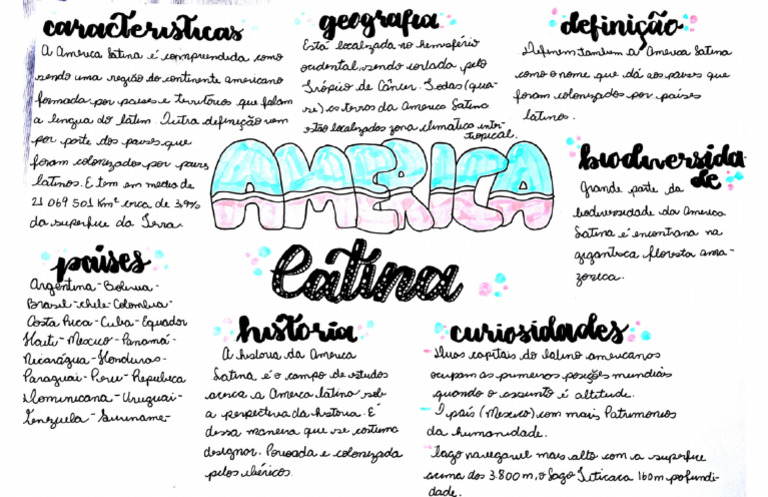 características
A America Latina é compreendida como
sendo uma região do continente americano
formada por paises e territórios que falam
a lingua do látim Outra definição vem
por parte dos paises que
foram colonizados por paises
latinos. E tem em média de
21 069 501 Km² cerca de 3,9%
da superfice da Terra.
geografia
Está localizada no hemisfério
ocidental, sendo cortada pelo
Trópico de Câncer. Todas (qua-
se) as terras da America Latina
estão localizadas zona climatica inter-
tropical.
definição
Definem tambem a America Latina
como o nome que dá aos paises que
foram colonizados por países
latinos.
AMERICA
latina
biodiversida
de
Grande parte da
biodiversidade da America
Latina é encontrana na
gigantisca floresta ama-
zônica.
países
Argentina - Bolivia -
Brasil - chile - Colombia -
Costa Rica - Cuba - Equador
Haiti - Mexico - Panamá -
Nicarágua - Honduras -
Paraguai - Peru - Republica
Dominicana - Uruguai -
Venzuela - Suriname -
historia
A historia da America
Latina é o campo de estudos
acerca a America latina sob
a perspectiva da historia. É
dessa maneira que se costuma
designar. Povoada e colonizada
pelos ibéricos.
curiosidades
- Duas capitais do latino americanos
ocupam as primeiras posições mundiais
quando o assunto é altitude.
- país (Mexico) com mais Patrimonios
da humanidade.
- lago navegavel mais alto com a superfice
acima dos 3.800 m, o Lago Titicaca 160m profundi-
dade.